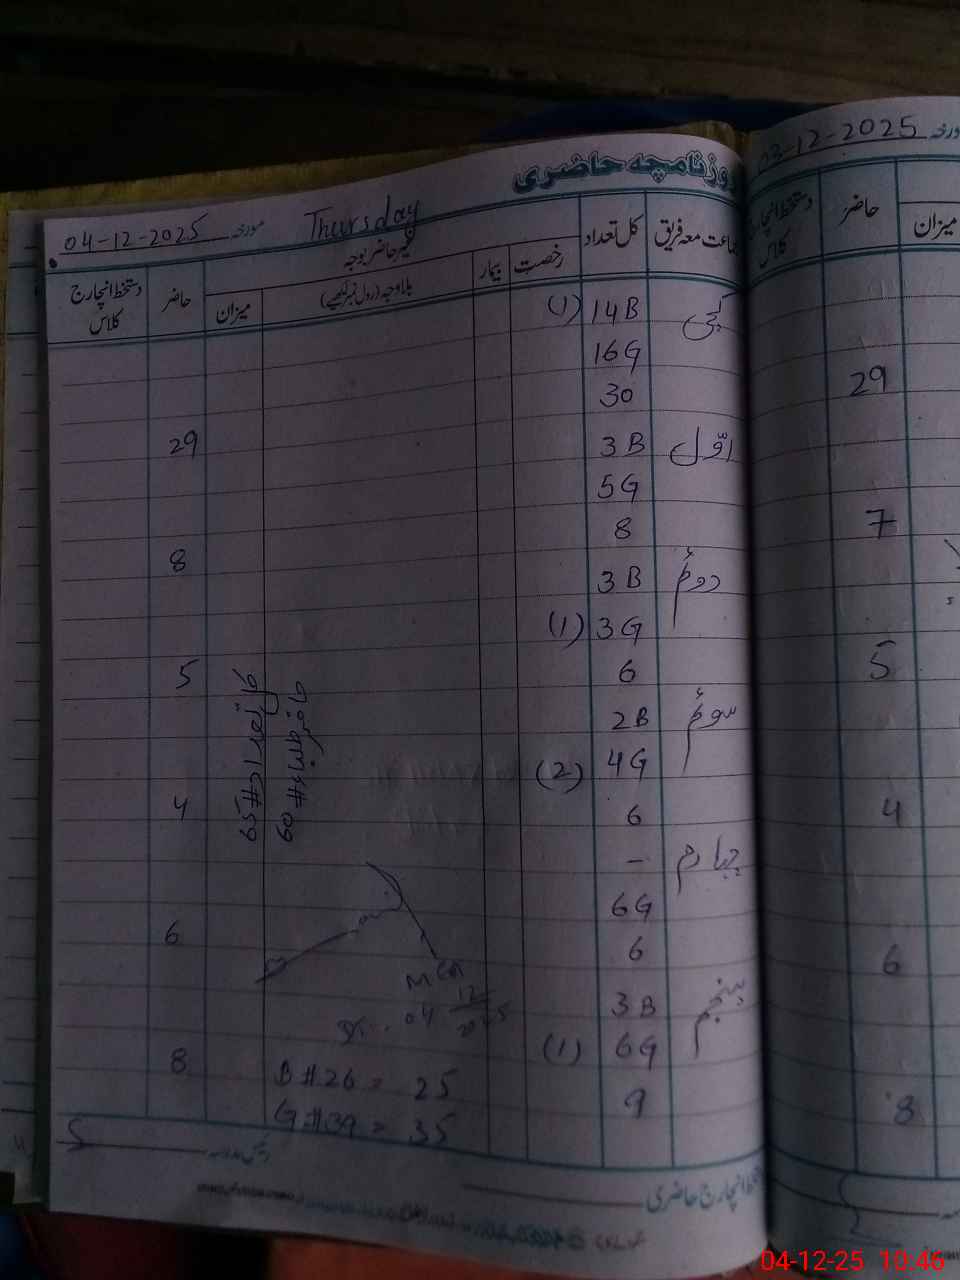 روزنامچہ حاضری
04-12-2025 مورخہ Thursday
جماعت معہ فریق کل تعداد رخصت بیمار غیر حاضر بوجہ
بلا وجہ (رول نمبر لکھیے) میزان حاضر دستخط انچارج کلاس
کچی 14B (1)
16G
30
29
اوّل 3B
5G
8
8
دوئم 3B
3G (1)
6
5
سوئم 2B
4G (2)
6
4
چہارم -
6G
6
6
پنجم 3B
6G (1)
9
8
#59
#09
MCR
04 12
B#26 = 25
G#39 = 35
رئیس مدرسہ
دستخط انچارج حاضری
03-12-2025 مورخہ
میزان حاضر دستخط انچارج کلاس
29
7
5
4
6
8
04-12-25 10:46